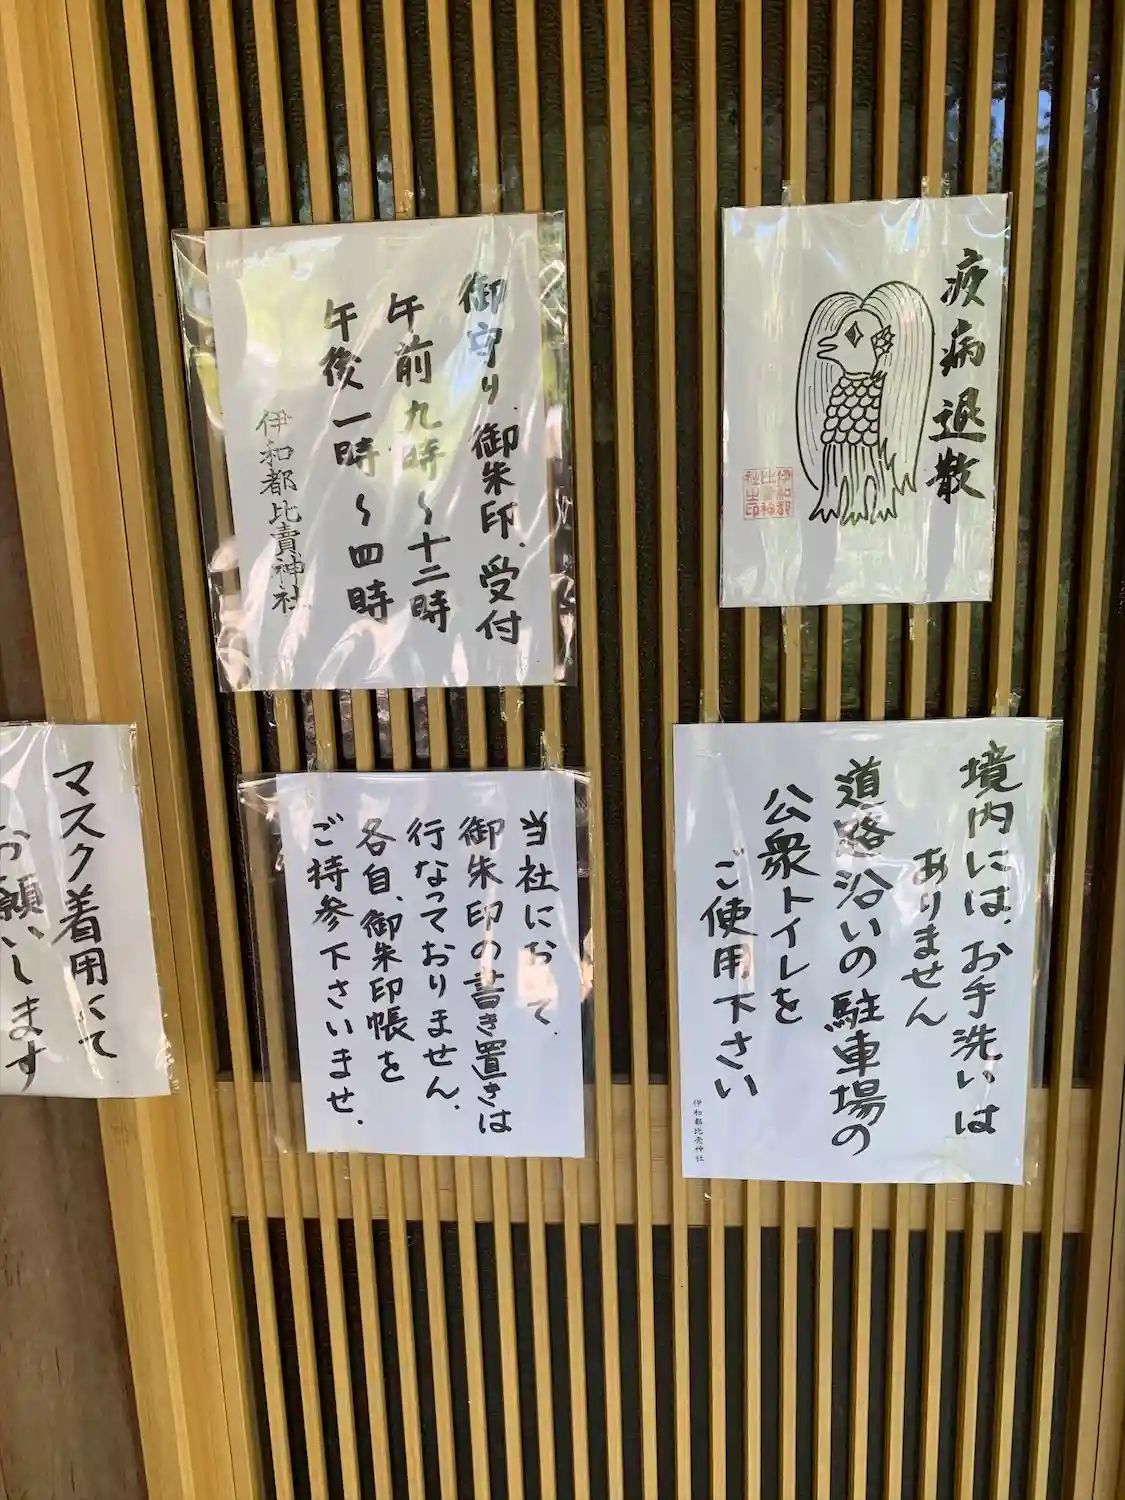 疫病退散
伊和都
比賣神
社之印
御守り、御朱印、受付
午前九時〜十二時
午後一時〜四時
伊和都比賣神社
境内には、お手洗いは
ありません
道路沿いの駐車場の
公衆トイレを
ご使用下さい
伊和都比売神社
当社において、
御朱印の書き置きは
行なっておりません、
各自、御朱印帳を
ご持参下さいませ.
マスク着用にて
お願いします